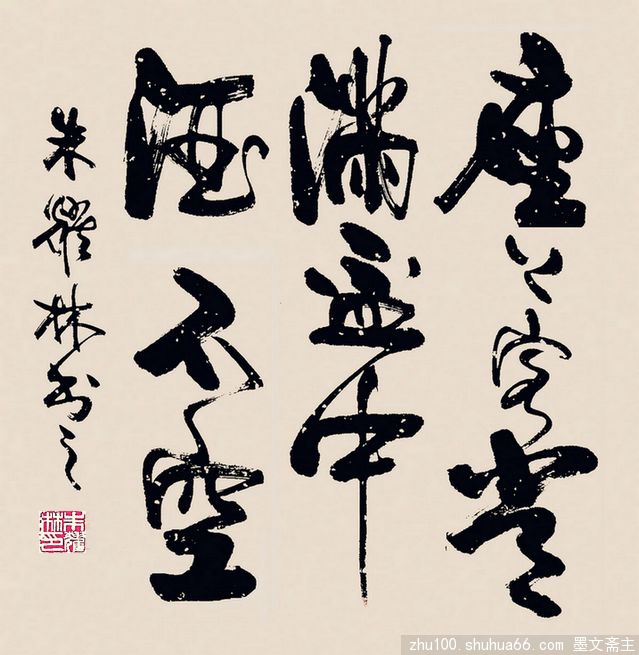 座上客常
滿盃中
酒不空
朱 林书之
zhu100.shuhua66.com 墨文斋主